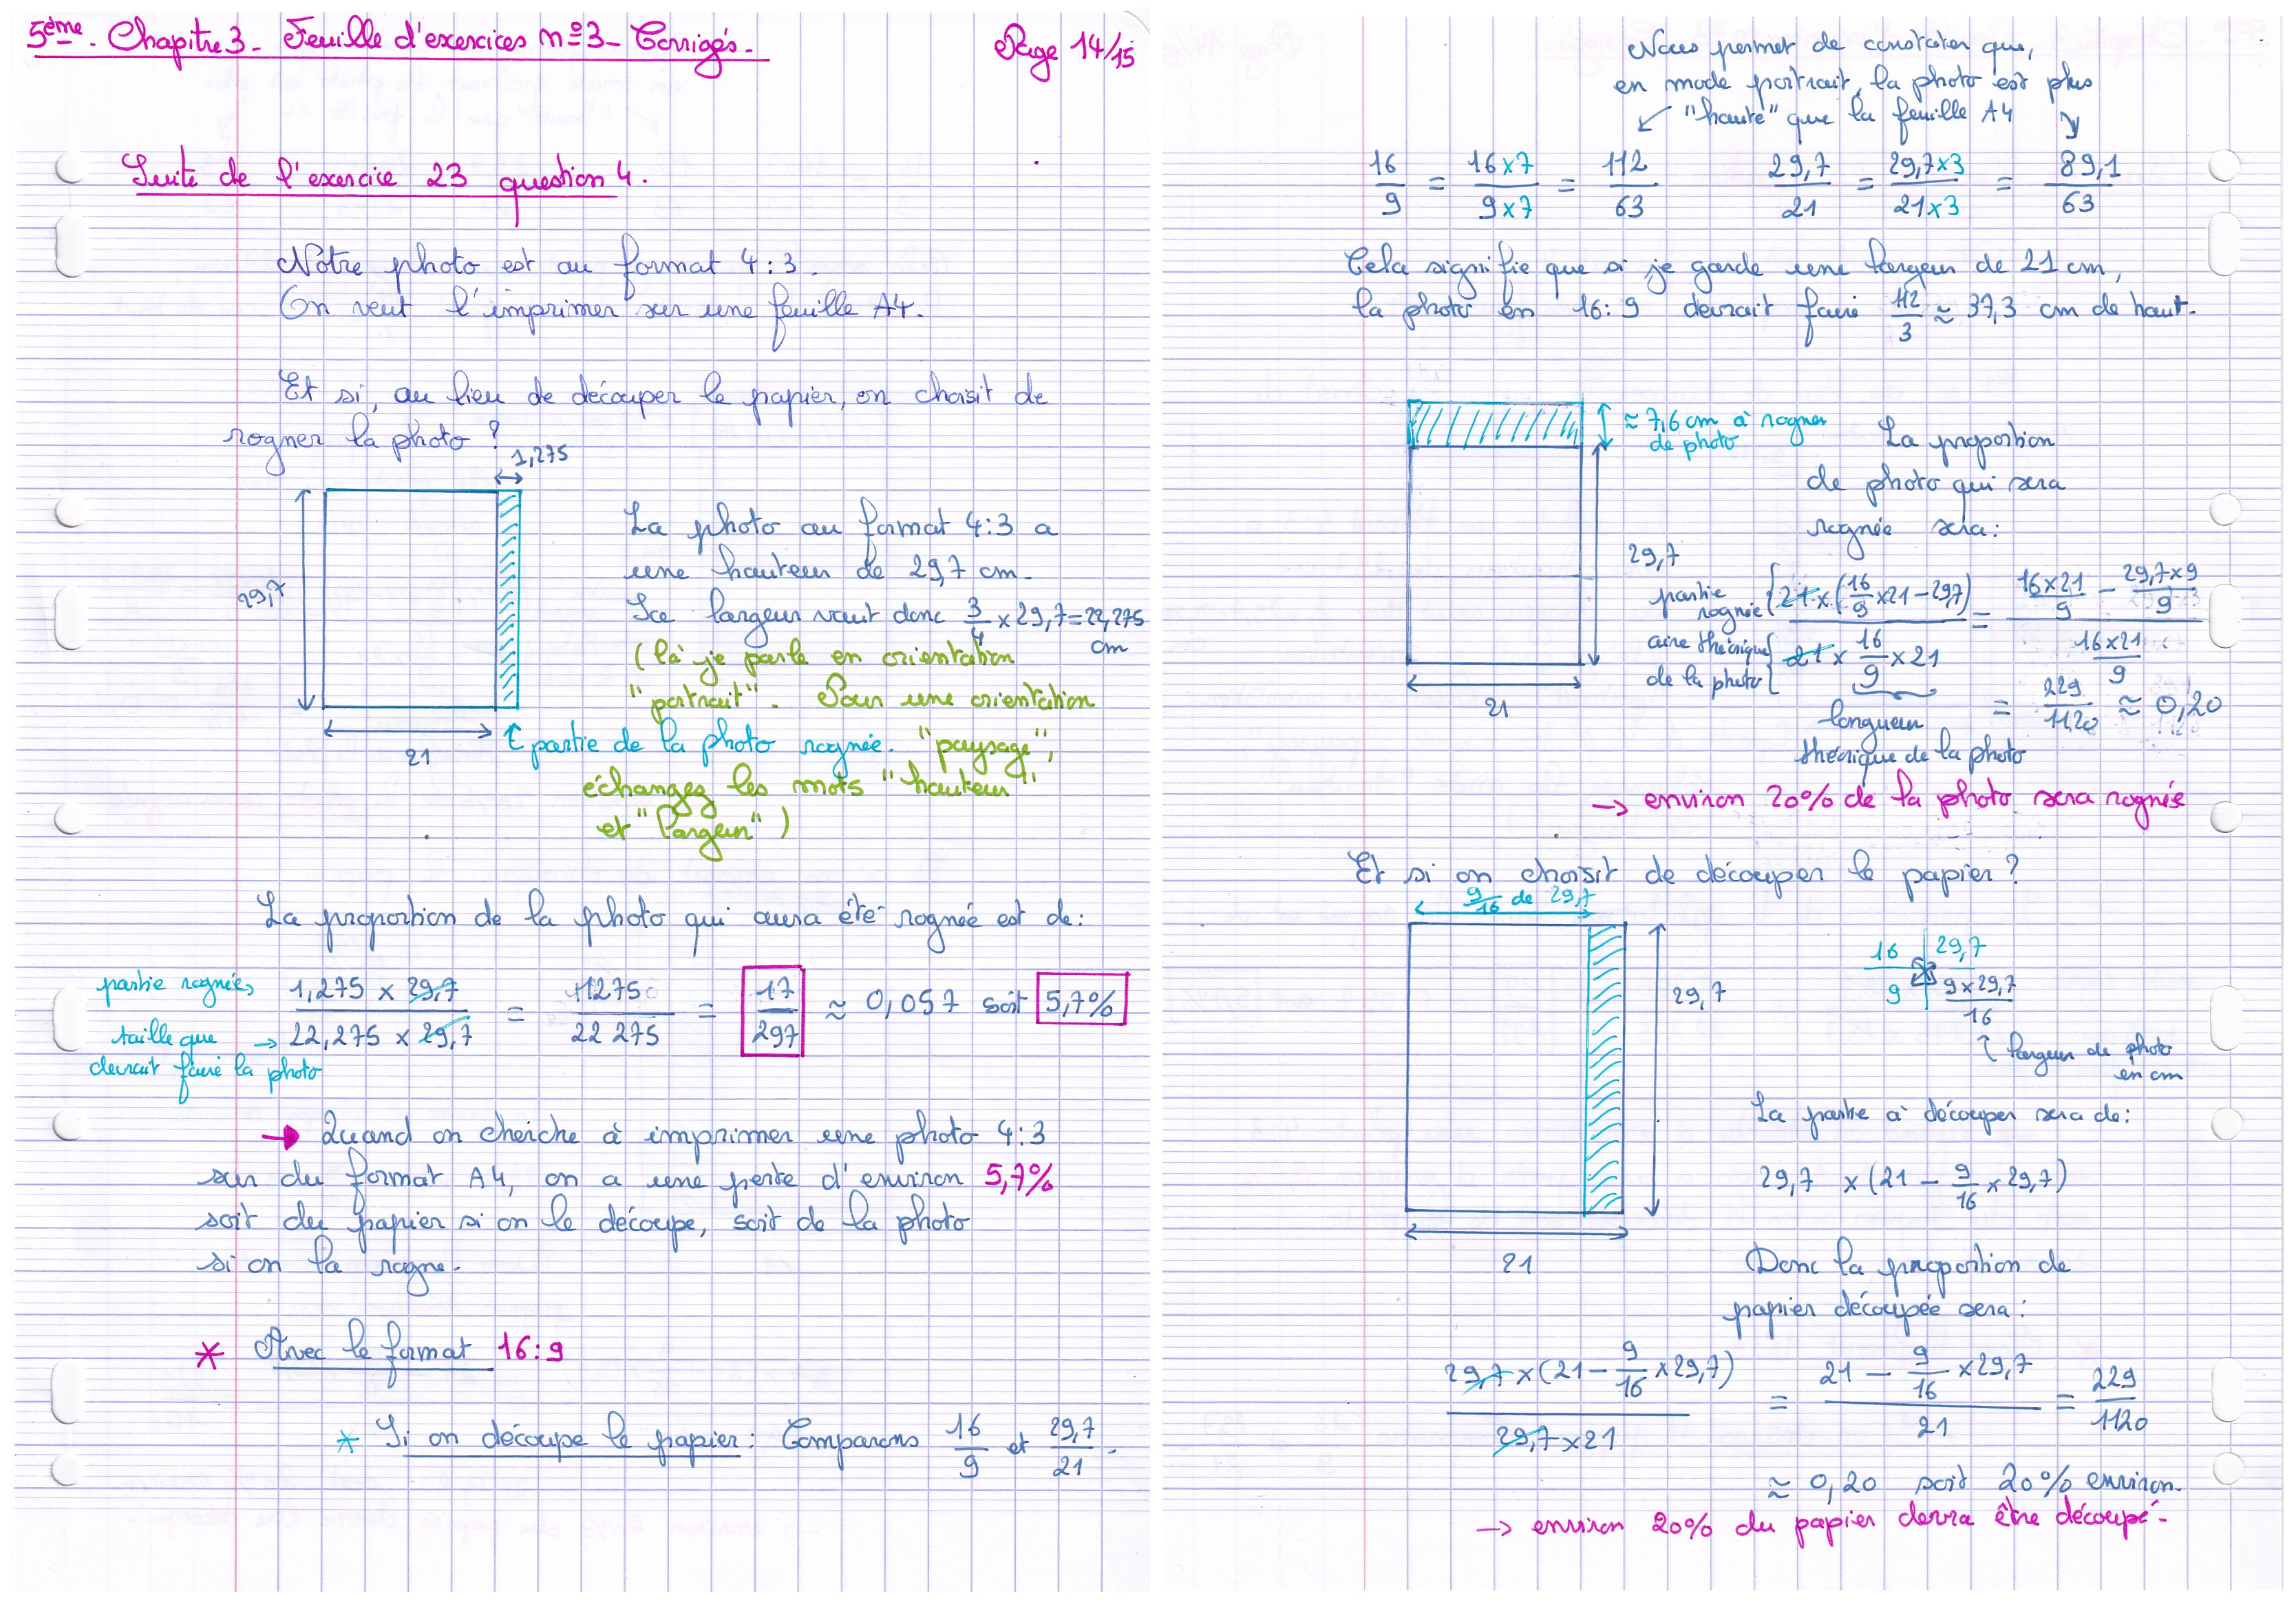 5ème. Chapitre 3 - Feuille d'exercices n°3 - Corrigés. Page 14/15
Suite de l'exercice 23 question 4.
Notre photo est au format 4:3.
On veut l'imprimer sur une feuille A4.
Et si, au lieu de découper le papier, on choisit de
rogner la photo ?
1,275
29,7
21
La photo au format 4:3 a
une hauteur de 29,7 cm.
Sa largeur vaut donc 3/4 × 29,7 = 22,275
cm
(là je parle en orientation
"portrait". Pour une orientation
↑ partie de la photo rognée. "paysage",
échangez les mots "hauteur"
et "largeur")
La proportion de la photo qui aura été rognée est de:
partie rognée → (1,275 × 29,7)/(22,275 × 29,7) = 1275/22 275 = 17/297 ≈ 0,057 soit 5,7%
taille que →
devrait faire la photo
→ Quand on cherche à imprimer une photo 4:3
sur du format A4, on a une perte d'environ 5,7%
soit du papier si on le découpe, soit de la photo
si on la rogne.
* Avec le format 16:9
* Si on découpe le papier: Comparons 16/9 et 29,7/21.
Nous permet de constater que,
en mode portrait, la photo est plus
"haute" que la feuille A4
16/9 = (16×7)/(9×7) = 112/63 29,7/21 = (29,7×3)/(21×3) = 89,1/63
Cela signifie que si je garde une largeur de 21 cm,
la photo en 16:9 devrait faire 112/3 ≈ 37,3 cm de haut.
≈ 7,6 cm à rogner
de photo
29,7
21
La proportion
de photo qui sera
rognée sera:
partie rognée { 21×(16/9 ×21-29,7)
aire théorique de la photo { 21 × 16/9 × 21
= (16×21/9 - 29,7×9/9)/(16×21/9)
longueur
théorique de la photo
= 229/1120 ≈ 0,20
→ environ 20% de la photo sera rognée
Et si on choisit de découper le papier ?
9/16 de 29,7
29,7
21
16 | 29,7
9 | 9×29,7/16
↑ largeur de photo
en cm
La partie à découper sera de:
29,7 × (21 - 9/16 × 29,7)
Donc la proportion de
papier découpée sera:
(29,7×(21 - 9/16 ×29,7))/(29,7×21) = (21 - 9/16 ×29,7)/21 = 229/1120
≈ 0,20 soit 20% environ.
→ environ 20% du papier devra être découpé.